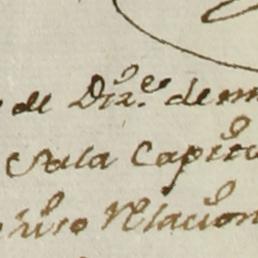 de Diz.e de m
Sala Capitu
hizo Relacion